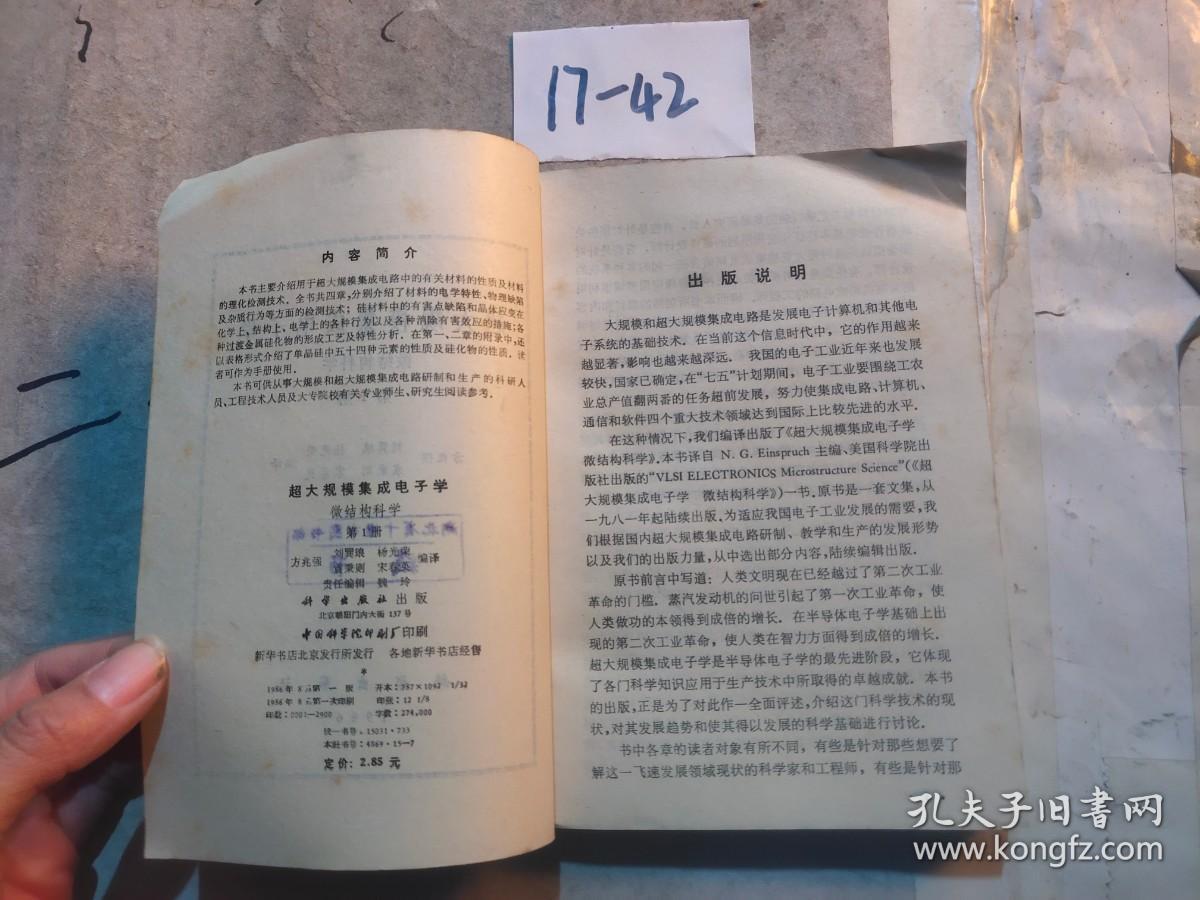 17-42
内容简介
本书主要介绍用于超大规模集成电路中的有关材料的性质及材料
的理化检测技术。全书共四章,分别介绍了材料的电学特性、物理缺陷
及杂质行为等方面的检测技术;硅材料中的有害点缺陷和晶体应变在
化学上、结构上、电学上的各种行为以及各种消除有害效应的措施;各
种过渡金属硅化物的形成工艺及特性分析。在第一、二章的附录中,还
以表格形式介绍了单晶硅中五十四种元素的性质及硅化物的性质。读
者可作为手册使用。
本书可供从事大规模和超大规模集成电路研制和生产的科研人
员、工程技术人员及大专院校有关专业师生、研究生阅读参考。
超大规模集成电子学
微结构科学
第1册
方兆强 刘巽琅 杨光荣
宋春英 编译
责任编辑 魏玲
科学出版社出版
北京朝阳门内大街 137 号
中国科学院印刷厂印刷
新华书店北京发行所发行 各地新华书店经售
*
1986年8月第一版 开本:787×1092 1/32
1986年8月第一次印刷 印张:12 1/8
印数:0001—2900 字数:274,000
统一书号:15031·733
本社书号:4869·15—7
定价: 2.85 元
出版说明
大规模和超大规模集成电路是发展电子计算机和其他电
子系统的基础技术。在当前这个信息时代中,它的作用越来
越显著,影响也越来越深远。 我国的电子工业近年来也发展
较快,国家已确定,在“七五”计划期间,电子工业要围绕工农
业总产值翻两番的任务超前发展,努力使集成电路、计算机、
通信和软件四个重大技术领域达到国际上比较先进的水平。
在这种情况下,我们编译出版了《超大规模集成电子学
微结构科学》。本书译自 N. G. Einspruch 主编、美国科学院出
版社出版的“VLSI ELECTRONICS Microstructure Science”(《超
大规模集成电子学 微结构科学》)一书。原书是一套文集,从
一九八一年起陆续出版。为适应我国电子工业发展的需要,我
们根据国内超大规模集成电路研制、教学和生产的发展形势
以及我们的出版力量,从中选出部分内容,陆续编辑出版。
原书前言中写道:人类文明现在已经越过了第二次工业
革命的门槛。蒸汽发动机的问世引起了第一次工业革命,使
人类做功的本领得到成倍的增长。在半导体电子学基础上出
现的第二次工业革命,使人类在智力方面得到成倍的增长。
超大规模集成电子学是半导体电子学的最先进阶段,它体现
了各门科学知识应用于生产技术中所取得的卓越成就。本书
的出版,正是为了对此作一全面评述,介绍这门科学技术的现
状,对其发展趋势和使其得以发展的科学基础进行讨论。
书中各章的读者对象有所不同,有些是针对那些想要了
解这一飞速发展领域现状的科学家和工程师,有些是针对那
孔夫子旧书网
www.kongfz.com